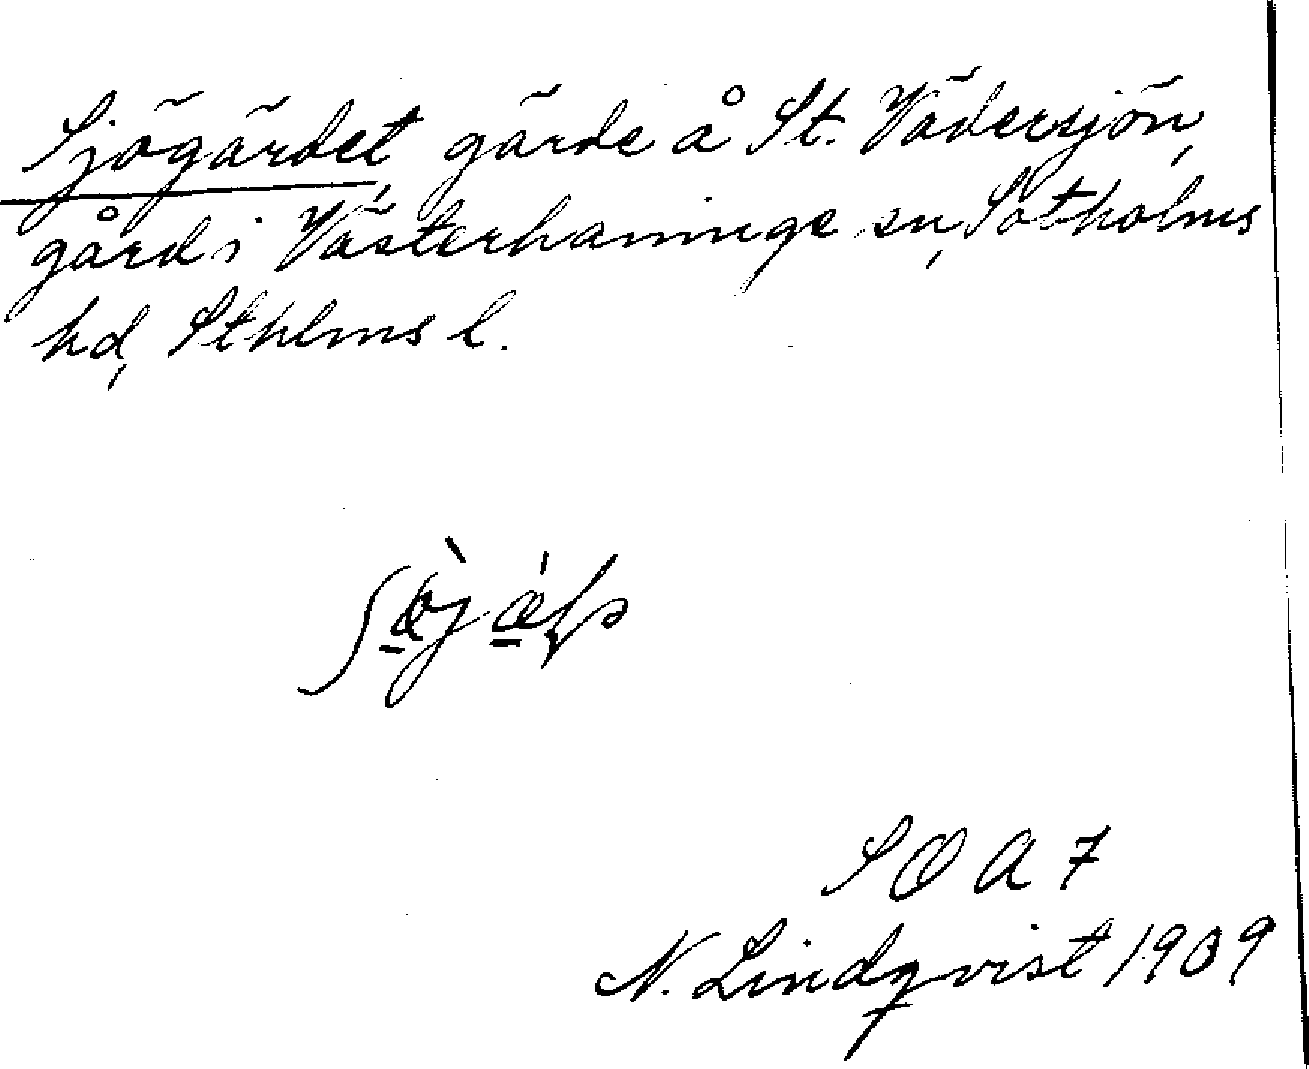 Sjögärdet gärde å St. Vädersjön,
gård i Västerhaninge sn, Sotholms
hd, Sthlms l.
S O A 7
N. Lindqvist 1909